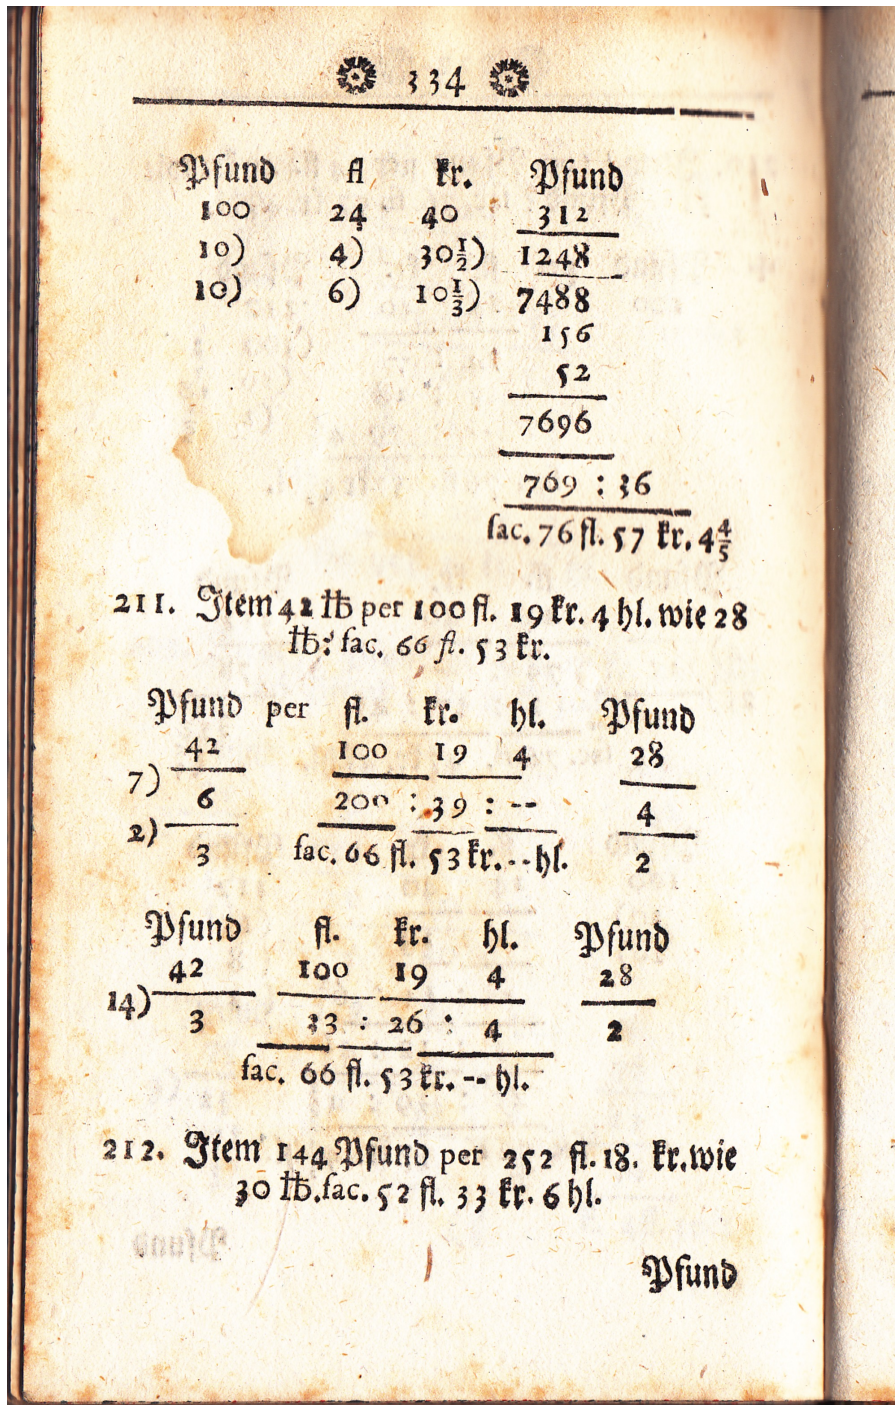 334
Pfund fl kr. Pfund
100 24 40 312
10) 4) 30½) 1248
10) 6) 10⅓) 7488
156
52
7696
769 : 36
fac. 76 fl. 57 kr. 4⅘
211. Item 42 ℔ per 100 fl. 19 kr. 4 hl. wie 28
℔: fac. 66 fl. 53 kr.
Pfund per fl. kr. hl. Pfund
42 100 19 4 28
7) 6 200 : 39 : -- 4
2) 3 fac. 66 fl. 53 kr. -- hl. 2
Pfund fl. kr. hl. Pfund
42 100 19 4 28
14) 3 33 : 26 : 4 2
fac. 66 fl. 53 kr. -- hl.
212. Item 144 Pfund per 252 fl. 18. kr. wie
30 ℔. fac. 52 fl. 33 kr. 6 hl.
Pfund